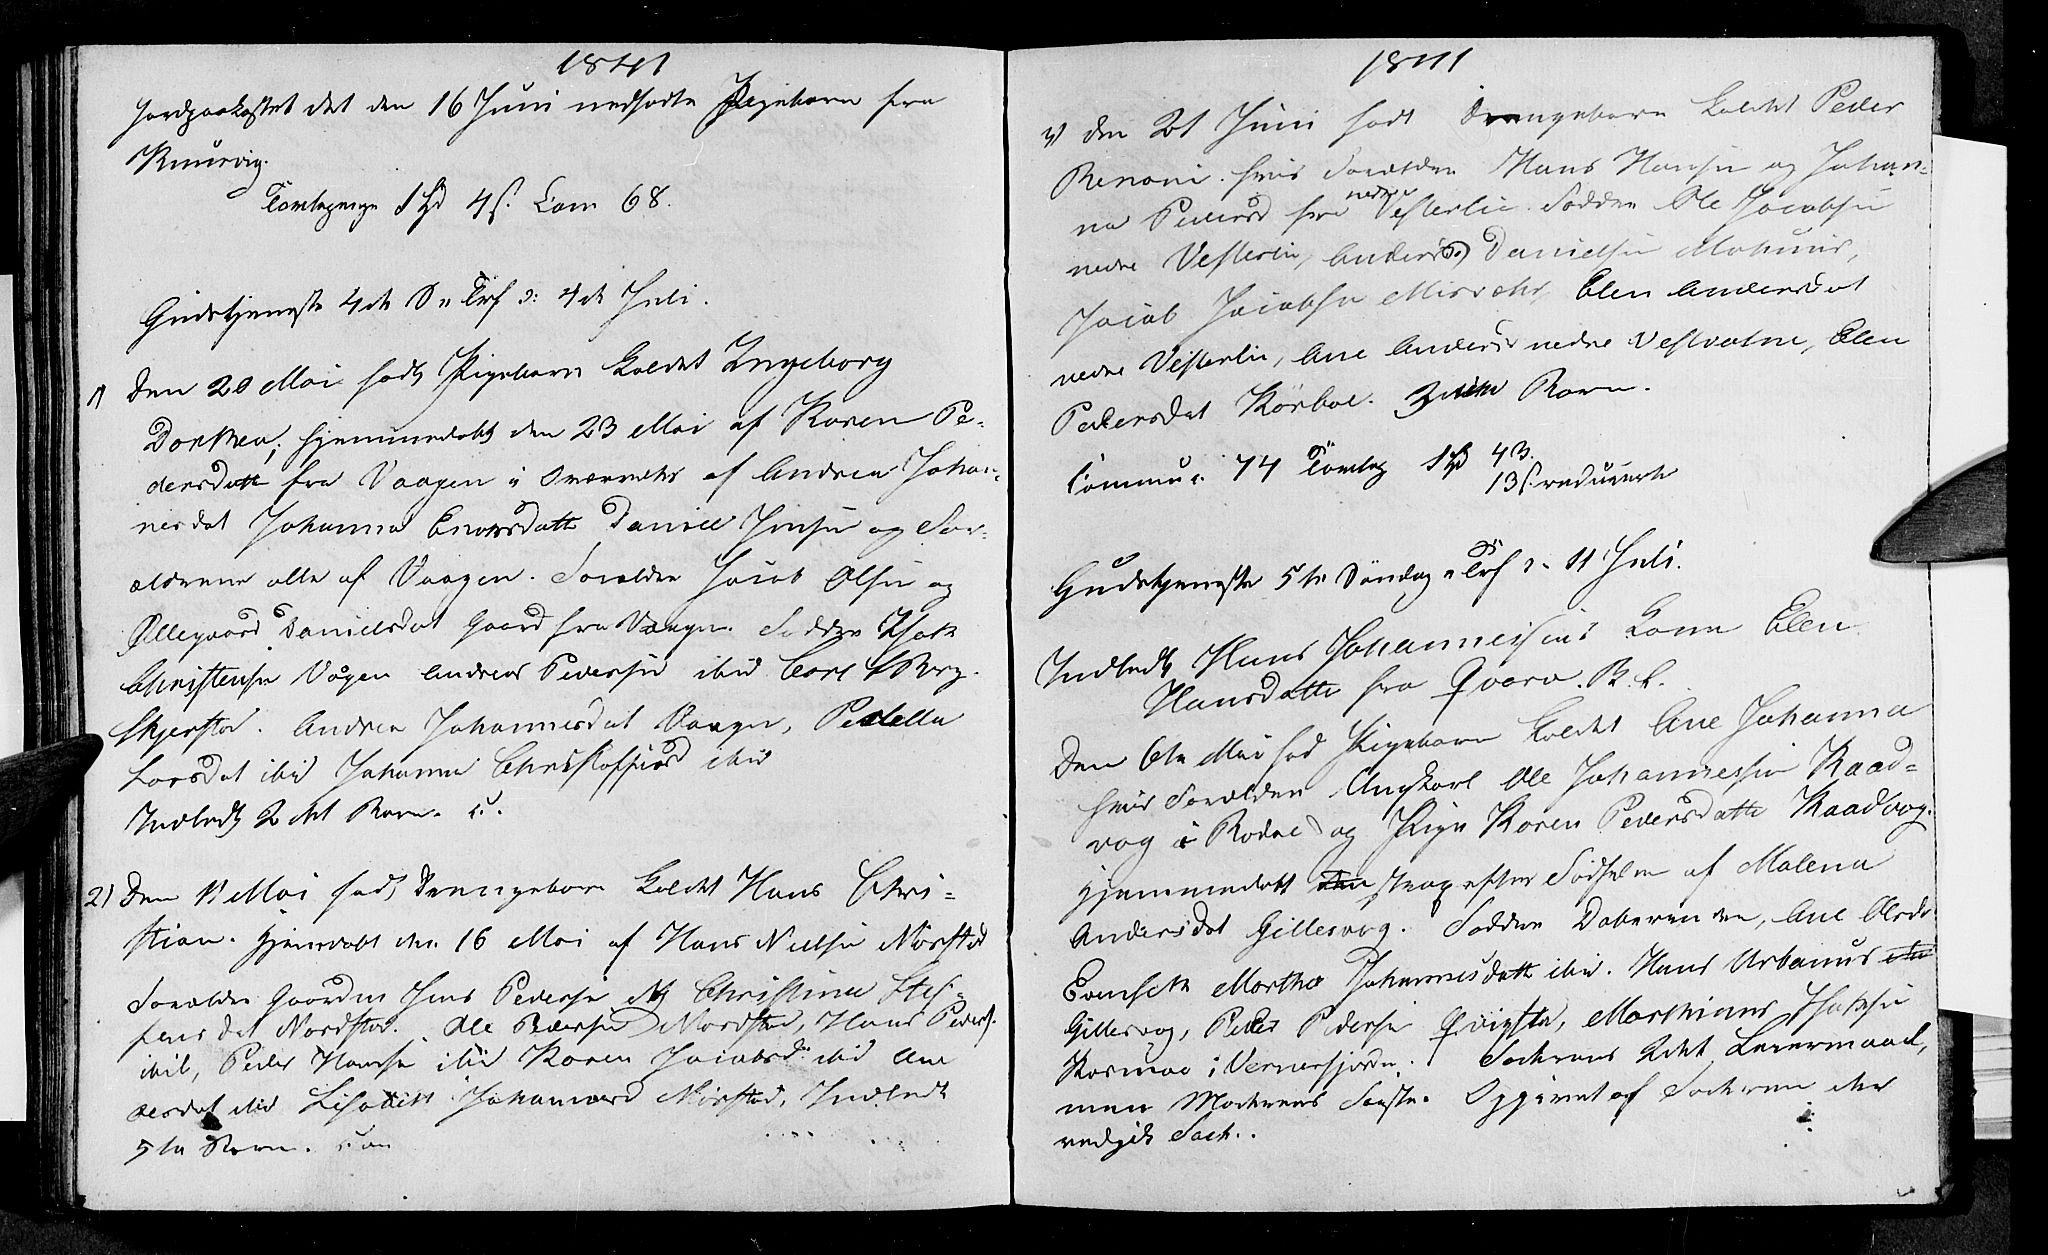 1841
Jordpaakastet det den 16 Juni nedsatte Pigebarn fra
Knurvig.
Tavlepenge 4 s. Com 68.
Gudstjeneste 4de S. e. Trf d: 4de Juli.
1) Den 20 Mai født Pigebarn kaldet Ingeborg
Dorthea, hjemmedøbt den 23 Mai af Karen Pe-
dersdatt fra Vaagen i Overværelse af Andrea Johan-
nesdat Johanna Enersdatt Daniel Jensen og For-
ældrene alle af Vaagen. Forældre Jacob Olsen og
Ellegaard Danielsdat Gaard fra Vaagen. Fadder Isak
Christensen Vågen Andreas Pedersen ibid Carl Berg
Skjerstad. Andrea Johannesdat Vaagen, Pedella
Larsdat ibid Johanna Christoffersd ibid
Indledt 2det Barn.
2) Den 11 Mai født Drengebarn kaldet Hans Chri-
stian. Hjemdøbt den 16 Mai af Hans Nielsen Nørstad
Forældre Gaardm Jens Pedersen og Christina Stef-
fensdat Nordstad. Ole Pedersen Nordstad, Hans Peders.
ibid, Peder Hansen ibid Karen Jacobsd ibid Ane
ibid Lisabeth Johannesd Nørstad, Indledt
5te Barn.
1841
3) den 21 Juni født Drengebarn kaldet Peder
Benoni. hvis Forældre Hans Hansen og Johan-
na Pedersd fra nedre Vesterlie. Fadder Ole Jacobsen
nedre Vesterlie, Anders Danielsen
Jacob Jacobsen Misvær, Elen Andersdat
nedre Vesterlie, Ane Andersd nedre Vestvatne, Elen
Pedersdat Kørbøe. 3die Barn.
Commu: 74 Tavlep 4 s.
13 s. reducerte
Gudstjeneste 5te Søndag e Trf d. 11 Juli.
Indledt Hans Johannessens Kone Elen
Hansdatte fra Qvarv.
Den 6te Mai fød Pigebarn kaldet Ane Johanna
hvis Forældre Ungkarl Ole Johannessen Kaad-
vog i Rodøe og Pige Karen Pedersdatte Kaadvog.
Hjemmedøbt strax efter Fødselen af Malena
Andersdat Gillesvog. Faddere Daberen den, Ane Olsd.
Evensett Martha Johannesdatt ibid. Hans Urbanus
Gillesvog, Peder Pedersen Qvigsta, Marthinus Isaksen
Kosmoe i Vernesfjorden. Faderens 2det Leiermaal,
men Moderens Første. Opgivet af Faderen der
vedgik Fad.